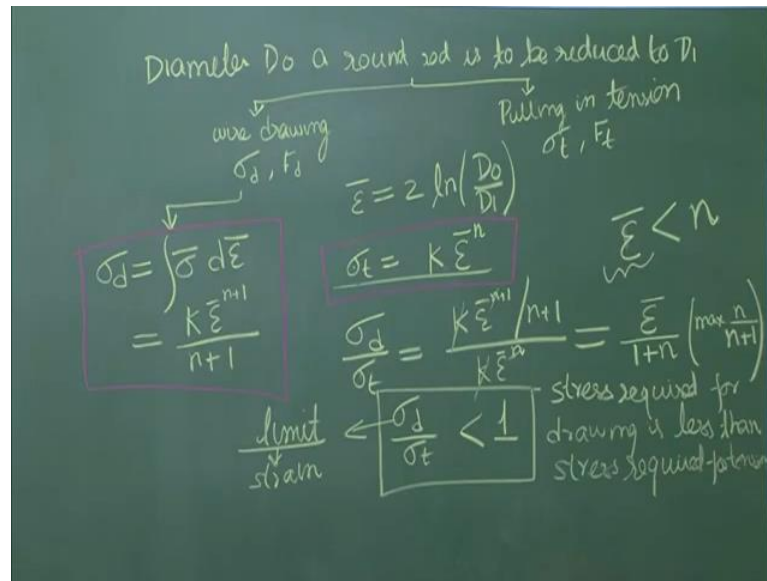 Diameter Do a round rod is to be reduced to D₁
wire drawing
σ_d, F_d
Pulling in tension
σ_t, F_t
ε̄ = 2 ln(D₀/D₁)
σ_d = ∫ σ̄ dε̄
= Kε̄ⁿ⁺¹/n+1
σ_t = K ε̄ⁿ
ε̄ < n
σ_d/σ_t = Kε̄ⁿ⁺¹/n+1 / Kε̄ⁿ = ε̄/1+n (max n/n+1)
limit ← σ_d/σ_t < 1
strain
stress required for
drawing is less than
stress required for tension